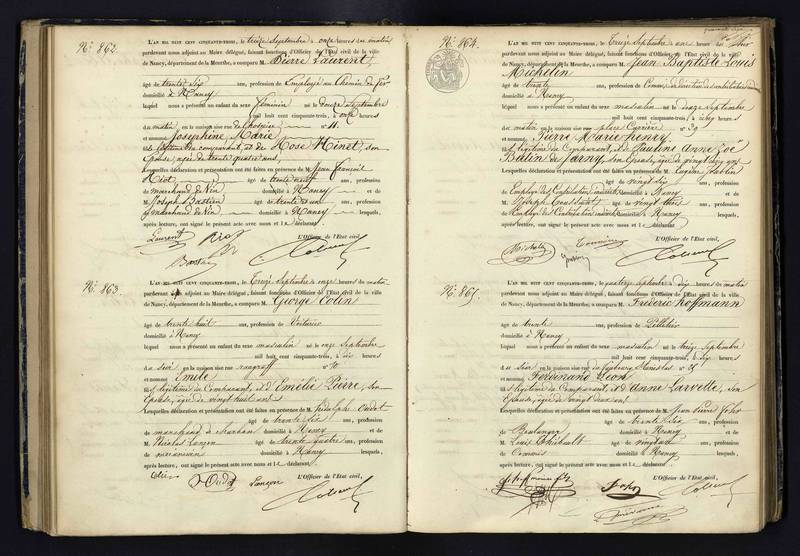 N.º 862.
L'AN MIL HUIT CENT CINQUANTE-TROIS, le treize Septembre à onze heures du matin
pardevant nous adjoint au Maire délégué, faisant fonctions d'Officier de l'Etat civil de la ville
de Nancy, département de la Meurthe, a comparu M. Pierre Laurent
âgé de trente six ans, profession de Employé au Chemin de fer
domicilié à Nancy
lequel nous a présenté un enfant du sexe féminin né le douze Septembre
mil huit cent cinquante-trois, à onze heures
du matin en la maison sise rue n° 11.
et nommé Joséphine Marie
comparant, et de Rose Hinot, son
épouse, agée de trente quatre ans,
Lesquelles déclaration et présentation ont été faites en présence de M. Jean François
Riot âgé de trente neuf ans, profession
de marchand de Vin domicilié à Nancy et de
M. Joseph Bastien âgé de trente et un ans, profession
de marchand de Vin domicilié à Nancy lesquels,
après lecture, ont signé le présent acte avec nous et l déclarant
L'Officier de l'Etat civil,
Laurent Riot
N.º 863.
L'AN MIL HUIT CENT CINQUANTE-TROIS, le Treize Septembre onze heures du matin
pardevant nous adjoint au Maire délégué, faisant fonctions d'Officier de l'Etat civil de la ville
de Nancy, département de la Meurthe, a comparu M. George Colin
âgé de trente huit ans, profession de Voiturier
domicilié à Nancy
lequel nous a présenté un enfant du sexe masculin né le onze Septembre
mil huit cent cinquante-trois, à six heures
du soir en la maison sise rue n° 10
et nommé Emile
fils légitime du Comparant, et d'Emélie Pierre, son
épouse, âgée de vingt huit ans
Lesquelles déclaration et présentation ont été faites en présence de M. Oudot
âgé de trente six ans, profession
de marchand domicilié à Nancy et de
M. Nicolas Lançon âgé de trente quatre ans, profession
de domicilié à Nancy lesquels,
après lecture, ont signé le présent acte avec nous et l déclarant
L'Officier de l'Etat civil,
Colin Oudot Lançon
N.º 864.
L'AN MIL HUIT CENT CINQUANTE-TROIS, le Treize Septembre une heure du Soir
pardevant nous adjoint au Maire délégué, faisant fonctions d'Officier de l'Etat civil de la ville
de Nancy, département de la Meurthe, a comparu M. Jean Baptiste Louis
Michelin
âgé de trente ans, profession de
domicilié à Nancy
lequel nous a présenté un enfant du sexe masculin né le douze Septembre
mil huit cent cinquante-trois, à cinq heures
du matin en la maison sise place Carrière n° 39
et nommé Pierre Marie Henry
fils légitime du Comparant, et de Pauline Anne Zoé
Batin de Jarny, son épouse, âgée de vingt cinq ans
Lesquelles déclaration et présentation ont été faites en présence de M. Eugène
âgé de vingt six ans, profession
de Employé des Contributions indirectes domicilié à Nancy et de
M. Joseph Toussaint âgé de vingt trois ans, profession
de Employé des Contributions indirectes domicilié à Nancy lesquels,
après lecture, ont signé le présent acte avec nous et l déclarant
L'Officier de l'Etat civil,
Michelin
N.º 867.
L'AN MIL HUIT CENT CINQUANTE-TROIS, le quatorze Septembre dix heures du matin
pardevant nous adjoint au Maire délégué, faisant fonctions d'Officier de l'Etat civil de la ville
de Nancy, département de la Meurthe, a comparu M. Frédéric Hoffmann
âgé de trente ans, profession de Sellier
domicilié à Nancy
lequel nous a présenté un enfant du sexe masculin né le treize Septembre
mil huit cent cinquante-trois, à six heures
du soir en la maison sise rue du faubourg Stanislas n° 25
et nommé Ferdinand Léon
fils légitime du Comparant, et d'Anne Larvette, son
épouse, âgée de vingt deux ans
Lesquelles déclaration et présentation ont été faites en présence de M. Jean Pierre Fohr
âgé de trente six ans, profession
de Boulanger domicilié à Nancy et de
M. Louis Thiébault âgé de vingt ans, profession
de Commis domicilié à Nancy lesquels,
après lecture, ont signé le présent acte avec nous et l déclarant
L'Officier de l'Etat civil,
Fohr